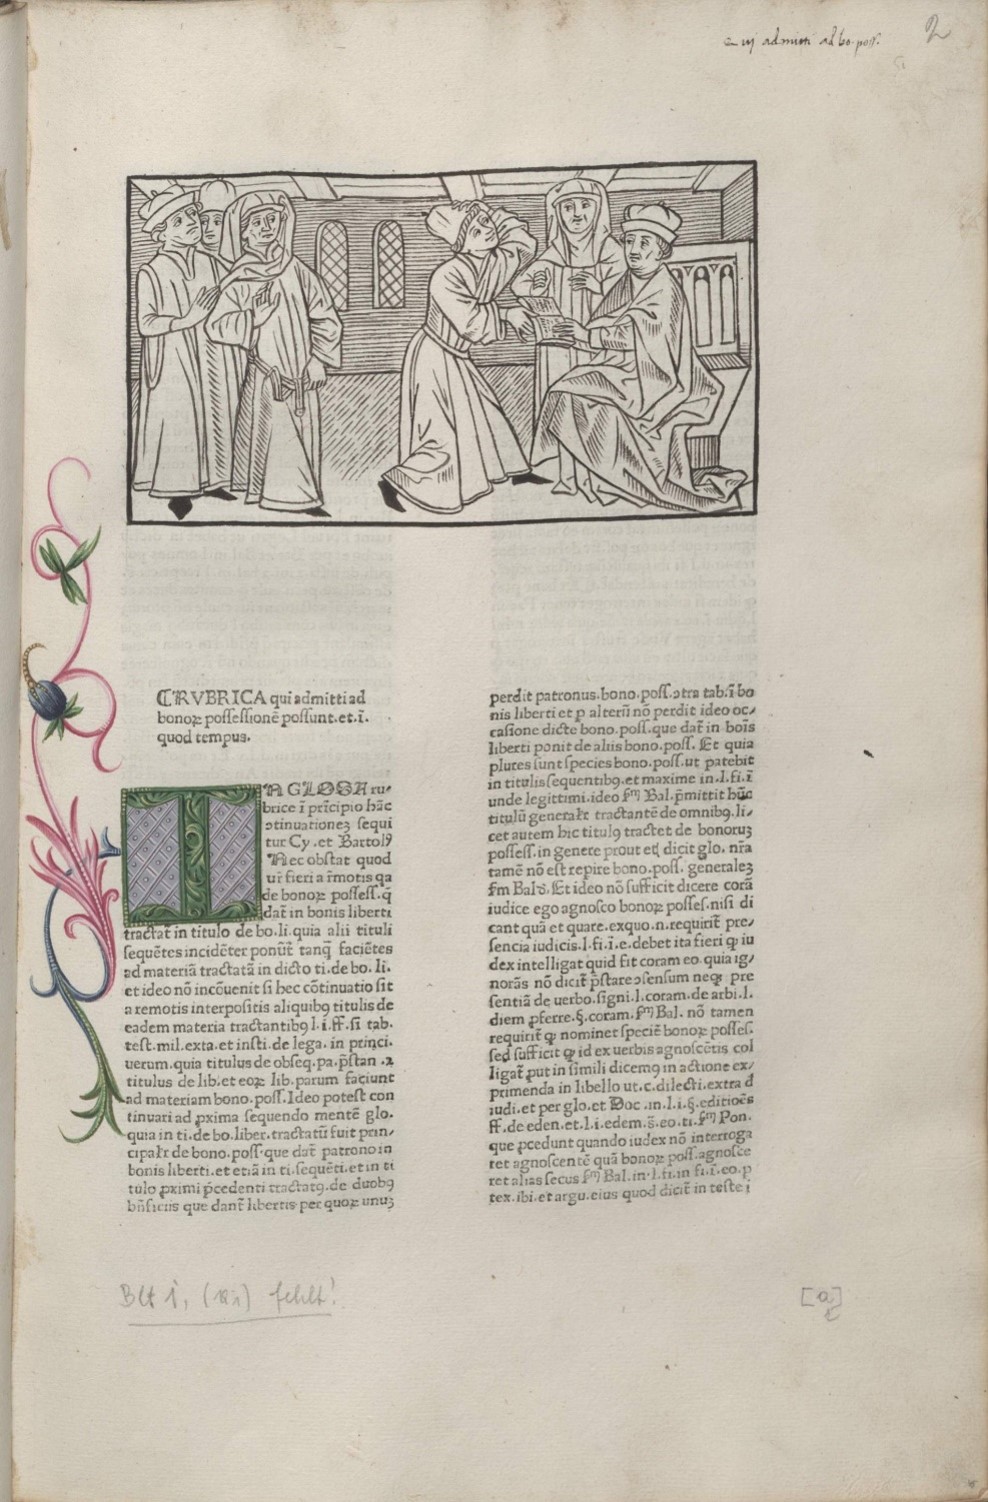 qui admitti ad bo. poss.
2
ꝶVBRICA qui admitti ad
bonoꝝ possessionē possunt.et.ī.
quod tempus.
IN GLOSA ru-
brice ī prīcipio hāc
ɔtinuationeꝫ sequi
tur Cy.et Bartolꝰ
Nec obstat quod
de bonoꝝ possess.q̄
dat̄ in bonis liberti
tractat̄ in titulo de bo.li.quia alii tituli
sequētes incidēter ponūt̄ tanq̄ faciētes
ad materiā tractatā in dicto ti.de bo.li.
et ideo nō incōuenit si hec cōtinuatio sit
a remotis interpositis aliquibꝰ titulis de
eadem materia tractantibꝰ l.i.ff.si tab.
test.mil.exta.et insti.de lega.in princi.
uerum.quia titulus de obseq.pa.p̄stan.⁊
titulus de lib.et eoꝝ lib.parum faciunt
ad materiam bono.poss.Ideo potest con
tinuari ad ꝓxima sequendo mentē glo.
quia in ti.de bo.liber.tractatū fuit prin/
cipalr̄ de bono.poss.que dat̄ patrono in
bonis liberti.et etiā in ti.sequēti.et in ti
tulo ꝓximi p̄cedenti tractatꝰ.de duobꝰ
bn̄ficiis que dant̄ libertis per quoꝝ unuꝫ
perdit patronus.bono.poss.ɔtra tab.ī bo
nis liberti et p alterū nō perdit ideo oc/
casione dicte bono.poss.que dat̄ in boīs
liberti ponit de aliis bono.poss. Et quia
plures sunt species bono.poss.ut patebit
in titulis sequentibꝰ.et maxime in.l.fi.ī
unde legittimi.ideo fm̄ Bal.p̄mittit hūc
titulū generalr̄ tractantē de omnibꝰ.li/
cet autem hic titulꝰ tractet de bonoruꝫ
possess.in genere prout etꝭ dicit glo.nr̄a
tamē nō est repire bono.poss. generaleꝫ
fm Bal̄. Et ideo nō sufficit dicere corā
iudice ego agnosco bonoꝝ posses.nisi di
cant quā et quare.exquo.n.requirit̄ pre/
sencia iudicis.l.fi.ī.e.debet ita fieri ꝙ iu
dex intelligat quid fit coram eo.quia ig/
norās nō dicit̄ p̄stare ɔsensum neqꝫ pre
sentiā de uerbo.signi.l.coram.de arbi.l.
diem ꝓferre.§.coram.fm̄ Bal. nō tamen
requirit̄ ꝙ nominet speciē bonoꝝ posses.
sed sufficit ꝙ id ex uerbis agnoscētis col
ligat̄ ꝓut in simili dicemꝰ in actione ex/
primenda in libello ut.c.dilecti.extra d̄
iudi.et per glo.et Doc.in.l.i.§.editioēs
ff.de eden.et.l.i.edem.s̄.eo.ti.fm̄ Pon.
que ꝓcedunt quando iudex nō interroga
ret agnoscentē quā bonoꝝ poss.agnosce
ret alias secus fm̄ Bal.in.l.fi.in fi.ī.eo.p
tex.ibi.et argu.eius quod dicit̄ in teste ī
Blt 1, (a1) fehlt!